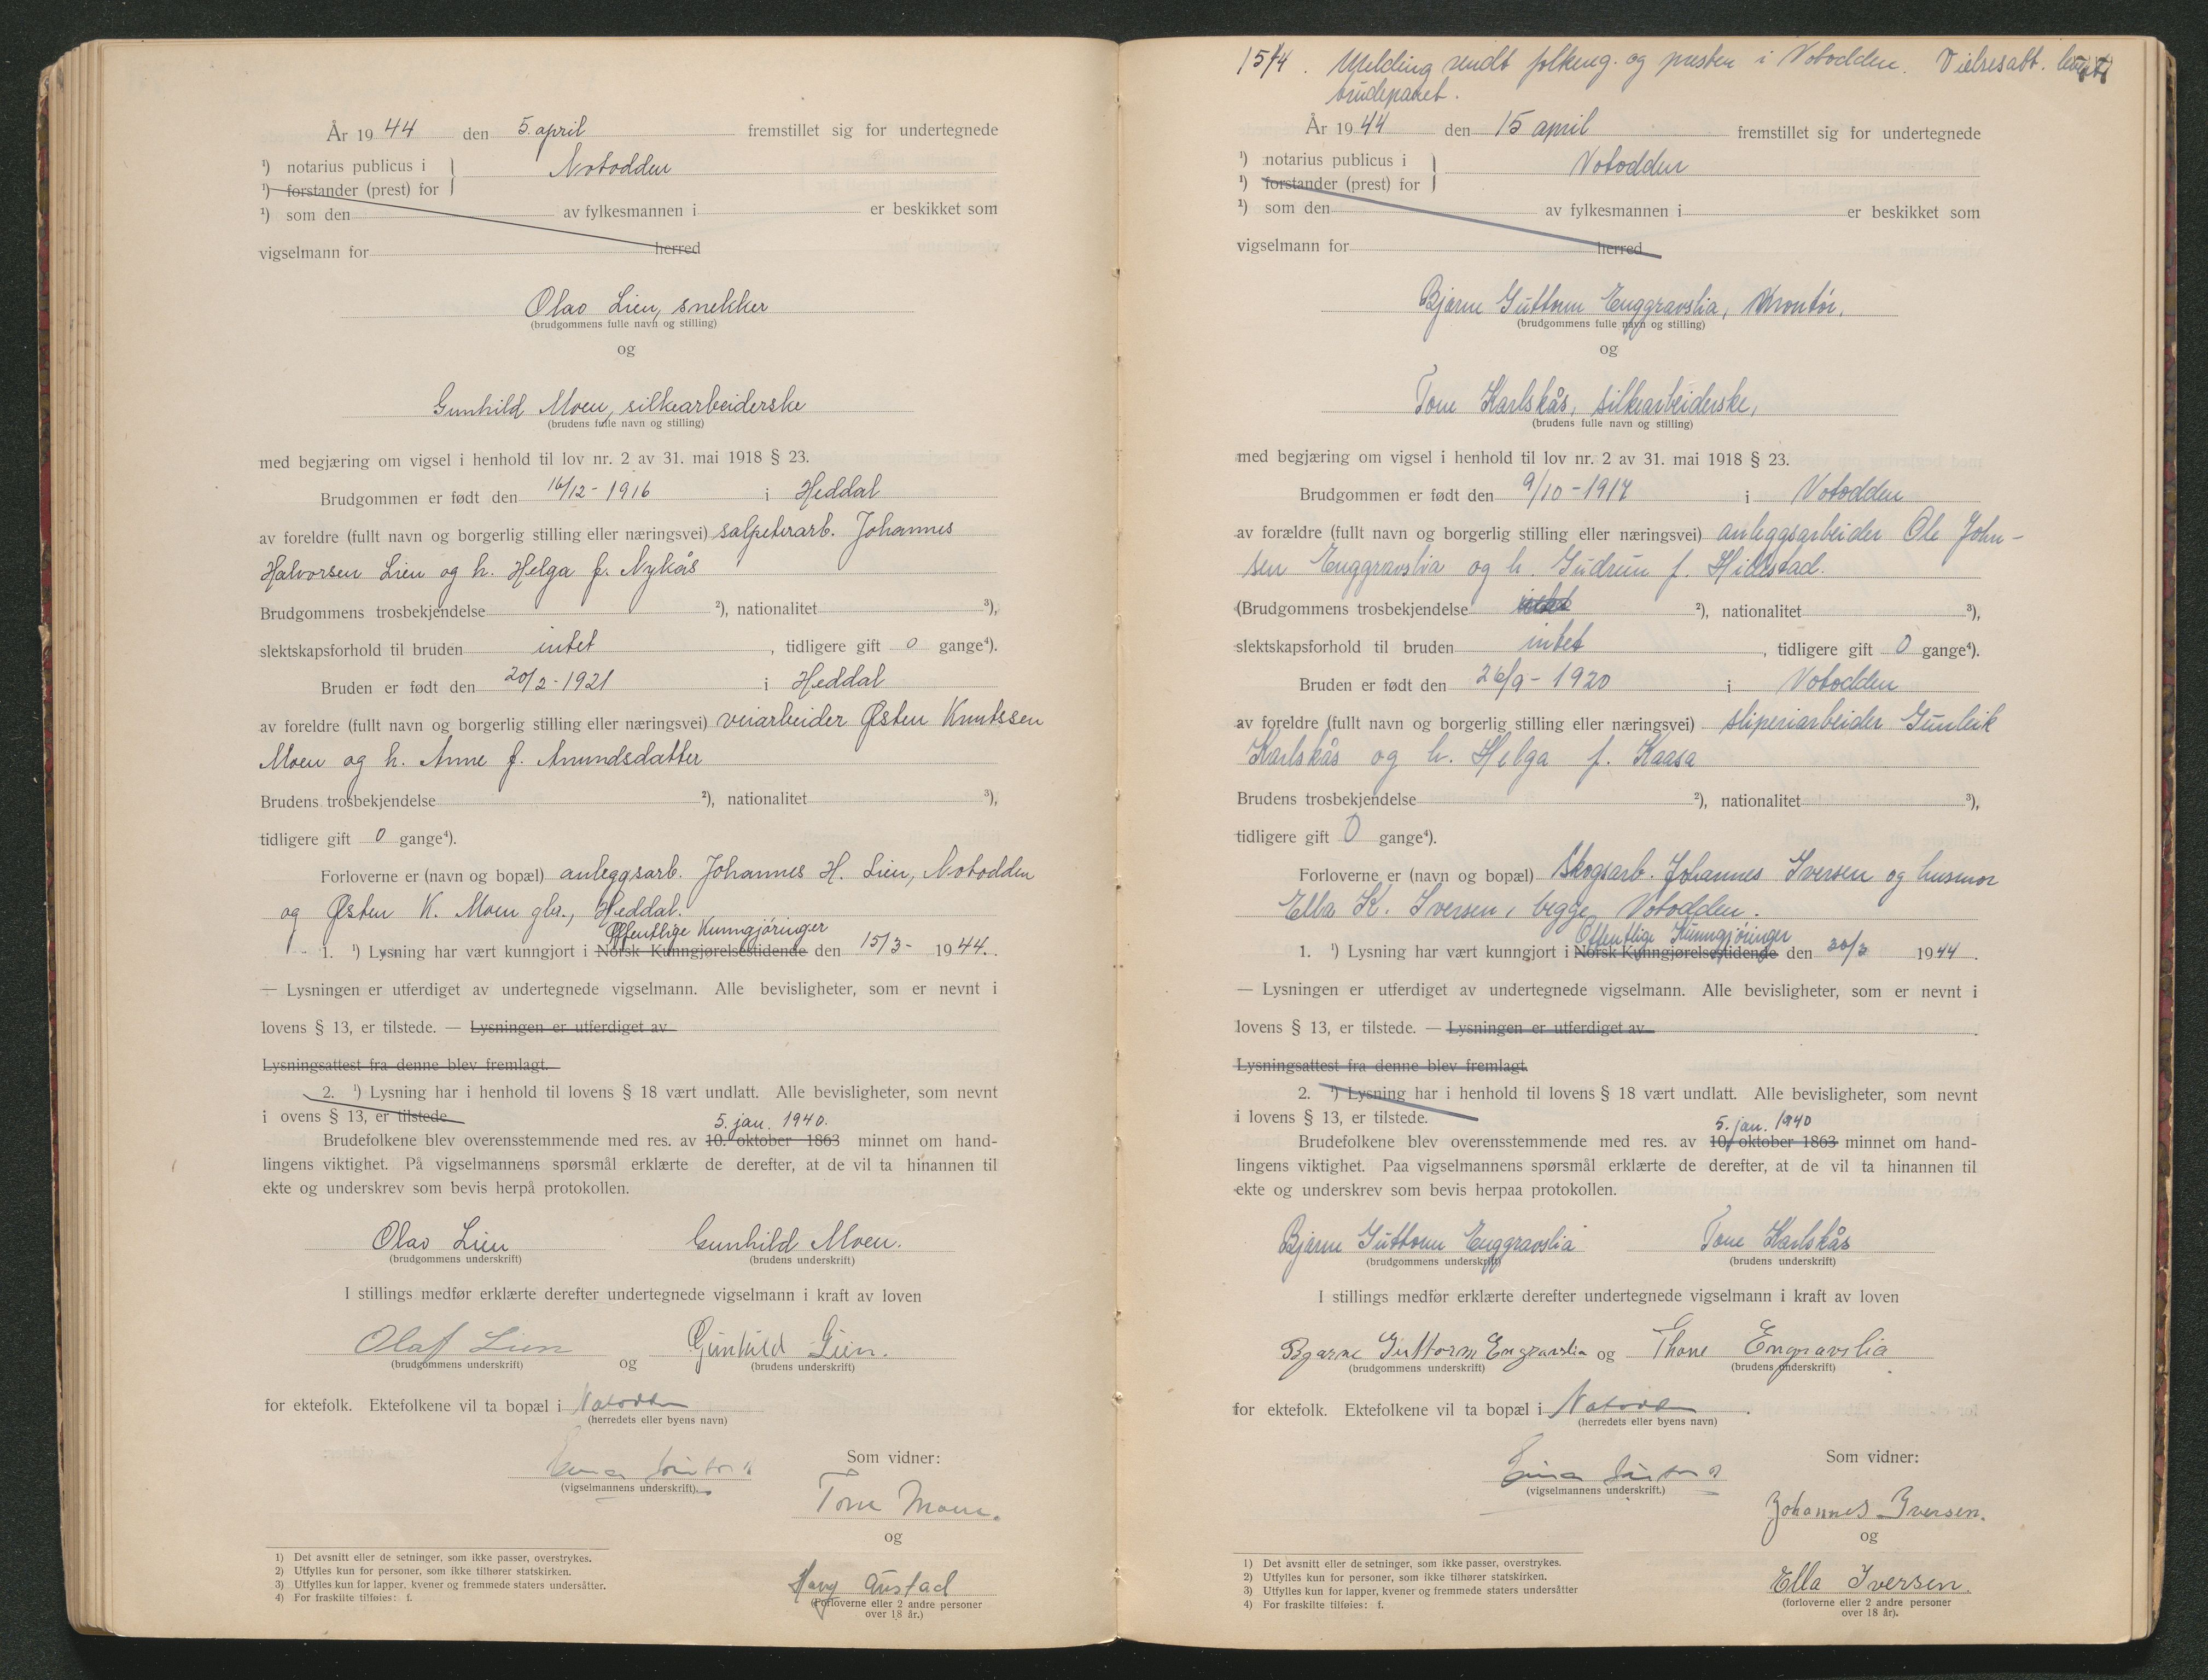 År 1944 den 5. april fremstillet sig for undertegnede
¹) notarius publicus i } Notodden
¹) forstander (prest) for
¹) som den av fylkesmannen i er beskikket som
vigselmann for herred
Olav Lien, snekker
(brudgommens fulle navn og stilling)
og
Gunhild Moen, silkearbeiderske
(brudens fulle navn og stilling)
med begjæring om vigsel i henhold til lov nr. 2 av 31. mai 1918 § 23.
Brudgommen er født den 16/12 - 1916 i Heddal
av foreldre (fullt navn og borgerlig stilling eller næringsvei) salpeterarb. Johannes
Halvorsen Lien og h. Helga f. Nykås
Brudgommens trosbekjendelse ²), nationalitet ³),
slektskapsforhold til bruden intet, tidligere gift 0 gange⁴).
Bruden er født den 20/2 - 1921 i Heddal
av foreldre (fullt navn og borgerlig stilling eller næringsvei) veiarbeider Østen Knutssen
Moen og h. Anne f. Amundsdatter
Brudens trosbekjendelse ²), nationalitet ³),
tidligere gift 0 gange⁴).
Forloverne er (navn og bopæl) anleggsarb. Johannes H. Lien, Notodden
og Østen K. Moen gbr., Heddal.
Offentlige Kunngjøringer
1. ¹) Lysning har vært kunngjort i Norsk Kunngjørelsestidende den 15/3 - 1944.
— Lysningen er utferdiget av undertegnede vigselmann. Alle bevisligheter, som er nevnt i
lovens § 13, er tilstede. — Lysningen er utferdiget av
Lysningsattest fra denne blev fremlagt.
2. ¹) Lysning har i henhold til lovens § 18 vært undlatt. Alle bevisligheter, som nevnt
i ovens § 13, er tilstede
5. jan. 1940.
Brudefolkene blev overensstemmende med res. av 10. oktober 1863 minnet om hand-
lingens viktighet. På vigselmannens spørsmål erklærte de derefter, at de vil ta hinannen til
ekte og underskrev som bevis herpå protokollen.
Olav Lien Gunhild Moen.
(brudgommens underskrift) (brudens underskrift)
I stillings medfør erklærte derefter undertegnede vigselmann i kraft av loven
Olaf Lien og Gunhild Lien.
(brudgommens underskrift) (brudens underskrift)
for ektefolk. Ektefolkene vil ta bopæl i Notodden
(herredets eller byens navn)
Som vidner:
(vigselmannens underskrift).
Tone Moen.
og
Austad
(Forloverne eller 2 andre personer
over 18 år.)
1) Det avsnitt eller de setninger, som ikke passer, overstrykes.
2) Utfylles kun for personer, som ikke tilhører statskirken.
3) Utfylles kun for lapper, kvener og fremmede staters undersåtter.
4) For fraskilte tilføies: f.
15/4. Melding sendt folkereg. og presten i Notodden. Vielsesatt. levert
brudeparet.
År 1944 den 15 april fremstillet sig for undertegnede
¹) notarius publicus i } Notodden
¹) forstander (prest) for
¹) som den av fylkesmannen i er beskikket som
vigselmann for herred
Bjarne Guttorm Enggravslia, kontor.
(brudgommens fulle navn og stilling)
og
Tone Karlskås, silkearbeiderske,
(brudens fulle navn og stilling)
med begjæring om vigsel i henhold til lov nr. 2 av 31. mai 1918 § 23.
Brudgommen er født den 9/10 - 1917 i Notodden
av forældre (fullt navn og borgerlig stilling eller næringsvei) anleggsarbeider Ole John-
sen Enggravslia og h. Gudrun f. Hidestad.
(Brudgommens trosbekjendelse intet ²), nationalitet ³),
slektskapsforhold til bruden intet, tidligere gift 0 gange⁴).
Bruden er født den 26/9 - 1920 i Notodden
av foreldre (fullt navn og borgerlig stilling eller næringsvei) sliperiarbeider Gunleik
Karlskås og h. Helga f. Kaasa
Brudens trosbekjendelse ²), nationalitet ³),
tidligere gift 0 gange⁴).
Forloverne er (navn og bopæl) Skogsarb. Johannes Iversen og husmor
Ella K. Iversen, begge Notodden.
Offentlige Kunngjøringer
1. ¹) Lysning har vært kunngjort i Norsk Kunngjørelsestidende den 30/3 1944.
— Lysningen er utferdiget av undertegnede vigselmann. Alle bevisligheter, som er nevnt i
lovens § 13, er tilstede. — Lysningen er utferdiget av
Lysningsattest fra denne blev fremlagt.
2. ¹) Lysning har i henhold til lovens § 18 vært undlatt. Alle bevisligheter, som nevnt
i lovens § 13, er tilstede.
5. jan. 1940
Brudefolkene blev overensstemmende med res. av 10. oktober 1863 minnet om hand-
lingens viktighet. Paa vigselmannens spørsmål erklærte de derefter, at de vil ta hinannen til
ekte og underskrev som bevis herpaa protokollen.
Bjarne Guttorm Enggravslia Tone Karlskås
(brudgommens underskrift) (brudens underskrift)
I stillings medfør erklærte derefter undertegnede vigselmann i kraft av loven
Bjarne Guttorm Engravslia og Thone Engravslia
(brudgommens underskrift) (brudens underskrift)
for ektefolk. Ektefolkene vil ta bopæl i Notodden.
(herredets eller byens navn)
Som vidner:
(vigselmannens underskrift.)
Johannes Iversen.
og
Ella Iversen.
(forloverne eller 2 andre personer
over 18 år).
1) Det avsnitt eller de setninger, som ikke passer, overstrykes.
2) Utfylles kun for personer, som ikke tilhører statskirken.
3) Utfylles kun for lapper, kvener og fremmede staters undersåtter
4) For fraskilte tilføies: f.